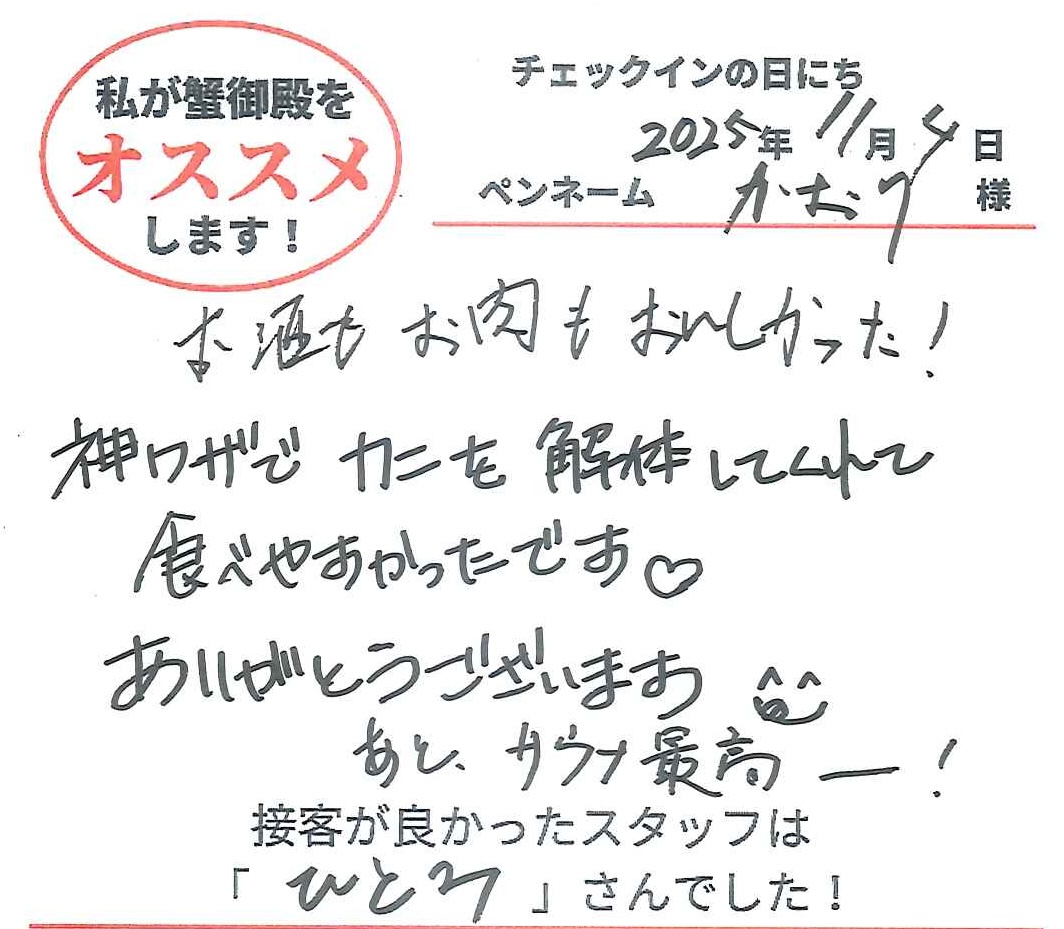 私が蟹御殿を
オススメ
します！
チェックインの日にち
2025年 11月 4日
ペンネーム かおり 様
お酒も お肉も おいしかった！
神ワザで カニを 解体してくれて
食べやすかったです♡
ありがとうございます
あと、サウナ最高ー！
接客が良かったスタッフは
「 ひとみ 」さんでした！